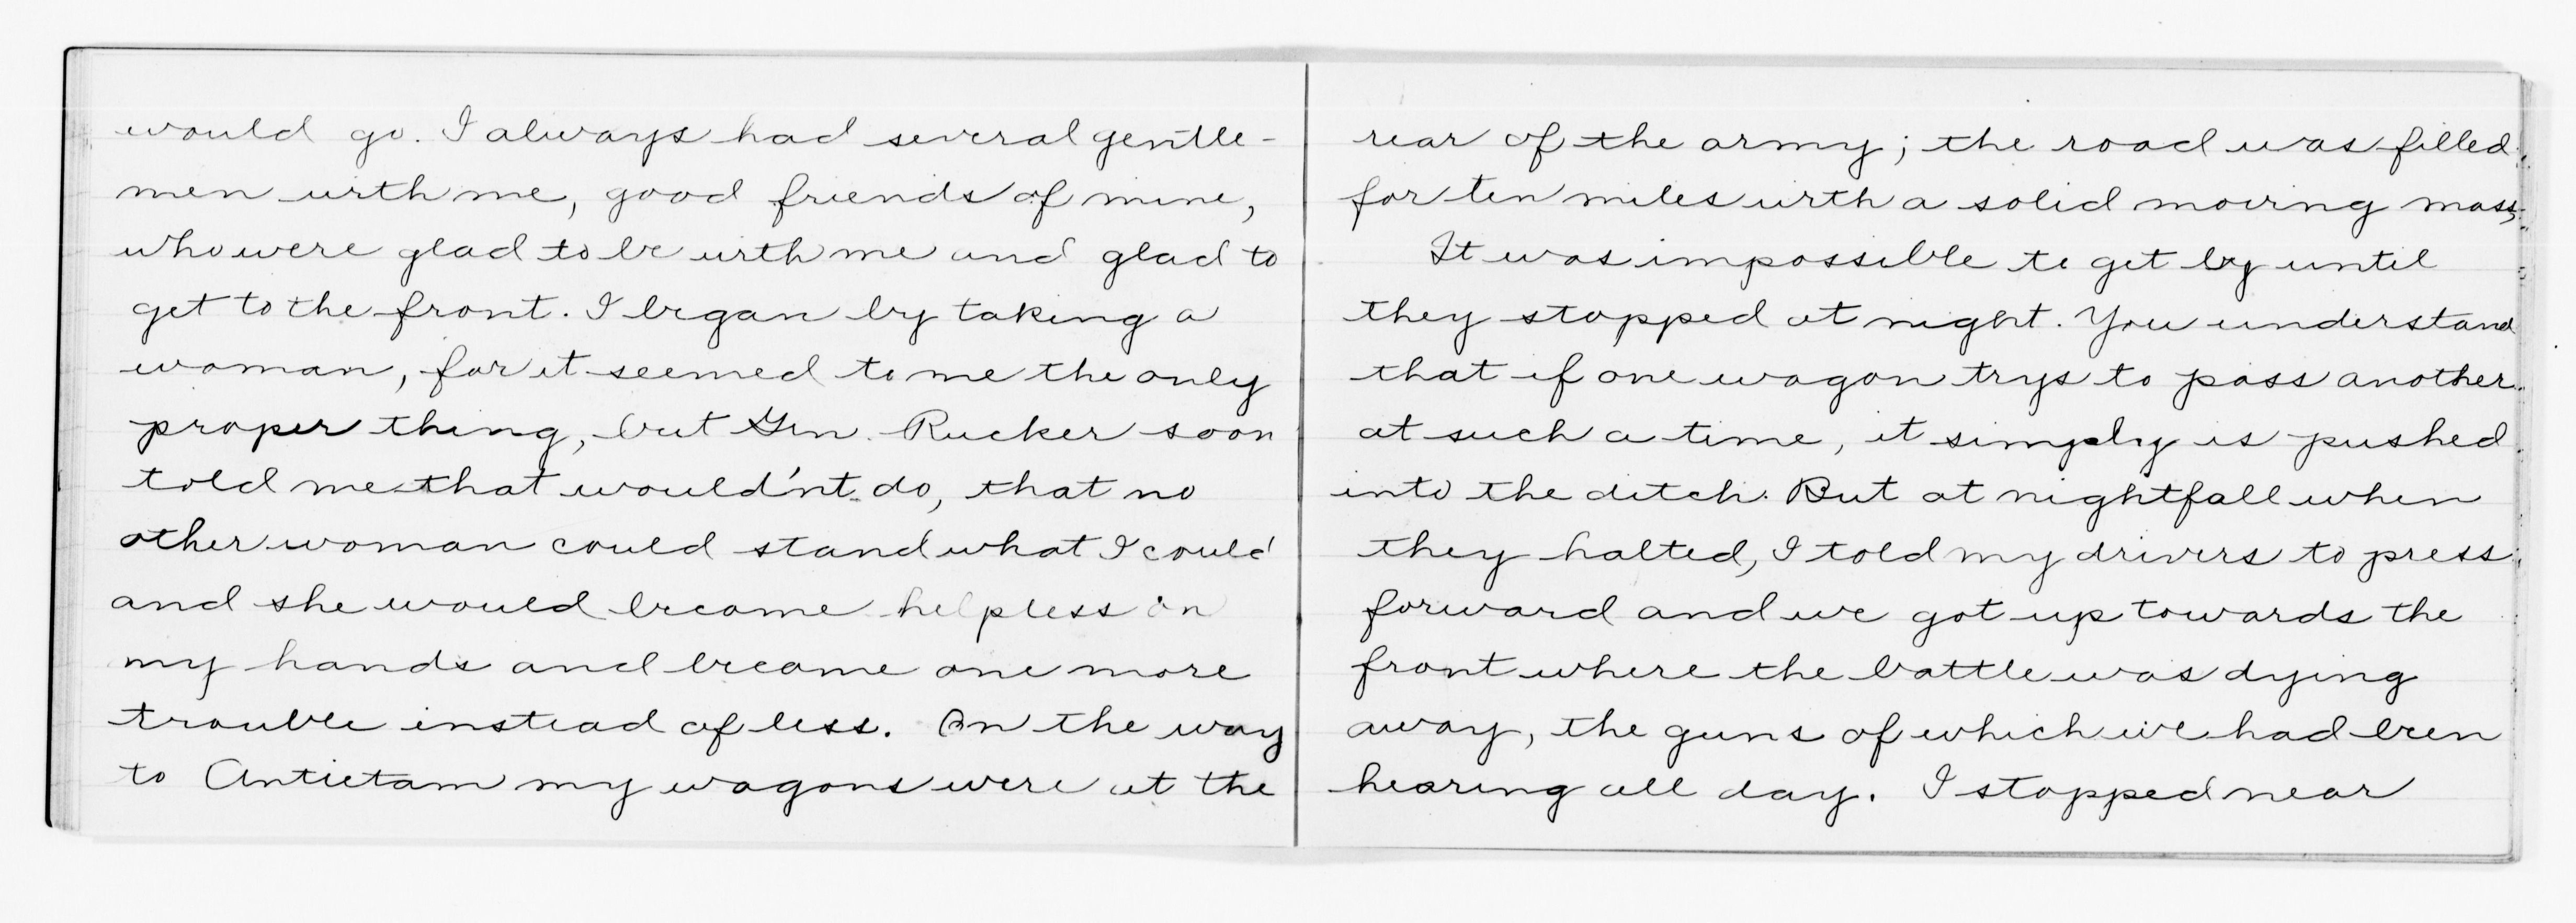 would go. I always had several gentle-
men with me, good friends of mine,
who were glad to be with me and glad to
get to the front. I began by taking a
woman, for it seemed to me the only
proper thing, but Gen. Rucker soon
told me that would'nt do, that no
other woman could stand what I could
and she would become helpless on
my hands and become one more
trouble instead of less. On the way
to Antietam my wagons were at the
rear of the army; the road was filled
for ten miles with a solid moving mass.
It was impossible to get by until
they stopped at night. You understand
that if one wagon trys to pass another
at such a time, it simply is pushed
into the ditch. But at nightfall when
they halted, I told my drivers to press
forward and we got up towards the
front where the battle was dying
away, the guns of which we had been
hearing all day. I stopped near